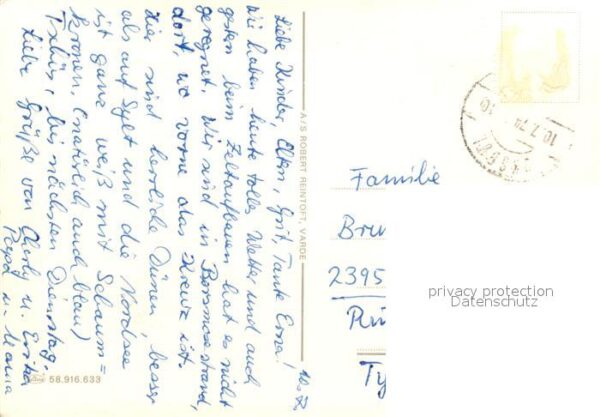 10.7.
Liebe Kinder, Eltern, Grit, Tante Erna!
Wir haben heute tolles Wetter und auch
gestern beim Zeltaufbauen hat es nicht
geregnet. Wir sind in Borsmosestrand,
dort, wo vorne das Kreuz ist.
Hier sind herrliche Dünen, besser
als auf Sylt und die Nordsee
ist ganz weiß mit Schaum=
kronen, (natürlich auch blau)
Tschüs, bis nächsten Dienstag.
Liebe Grüße von u. Erika
u. Maria
A/S ROBERT REINTOFT, VARDE
58.916.633
10.7.74
10
Familie
Bru
2395
privacy protection
Datenschutz